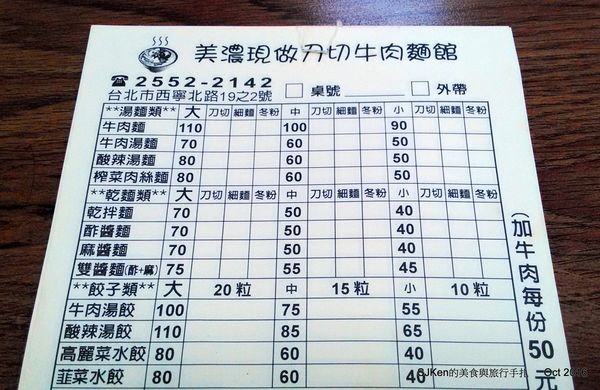 美濃現做刀切牛肉麵館
☎2552-2142 □桌號 □外帶
台北市西寧北路19之2號
**湯麵類** 大 刀切 細麵 冬粉 中 刀切 細麵 冬粉 小 刀切 細麵 冬粉
牛肉麵 110 100 90
牛肉湯麵 70 60 50
酸辣湯麵 80 60 50
榨菜肉絲麵 80 60 50
**乾麵類** 大 刀切 細麵 冬粉 中 刀切 細麵 冬粉 小 刀切 細麵 冬粉
乾拌麵 70 50 40
酢醬麵 70 50 40
麻醬麵 70 50 40
雙醬麵(酢+麻) 75 55 45
**餃子類** 大 20 粒 中 15 粒 小 10 粒
牛肉湯餃 100 75 55
酸辣湯餃 110 85 65
高麗菜水餃 80 60 40
韮菜水餃 80 60 40
(加牛肉每份50元
SJKen的美食與旅行手札 Oct 2016